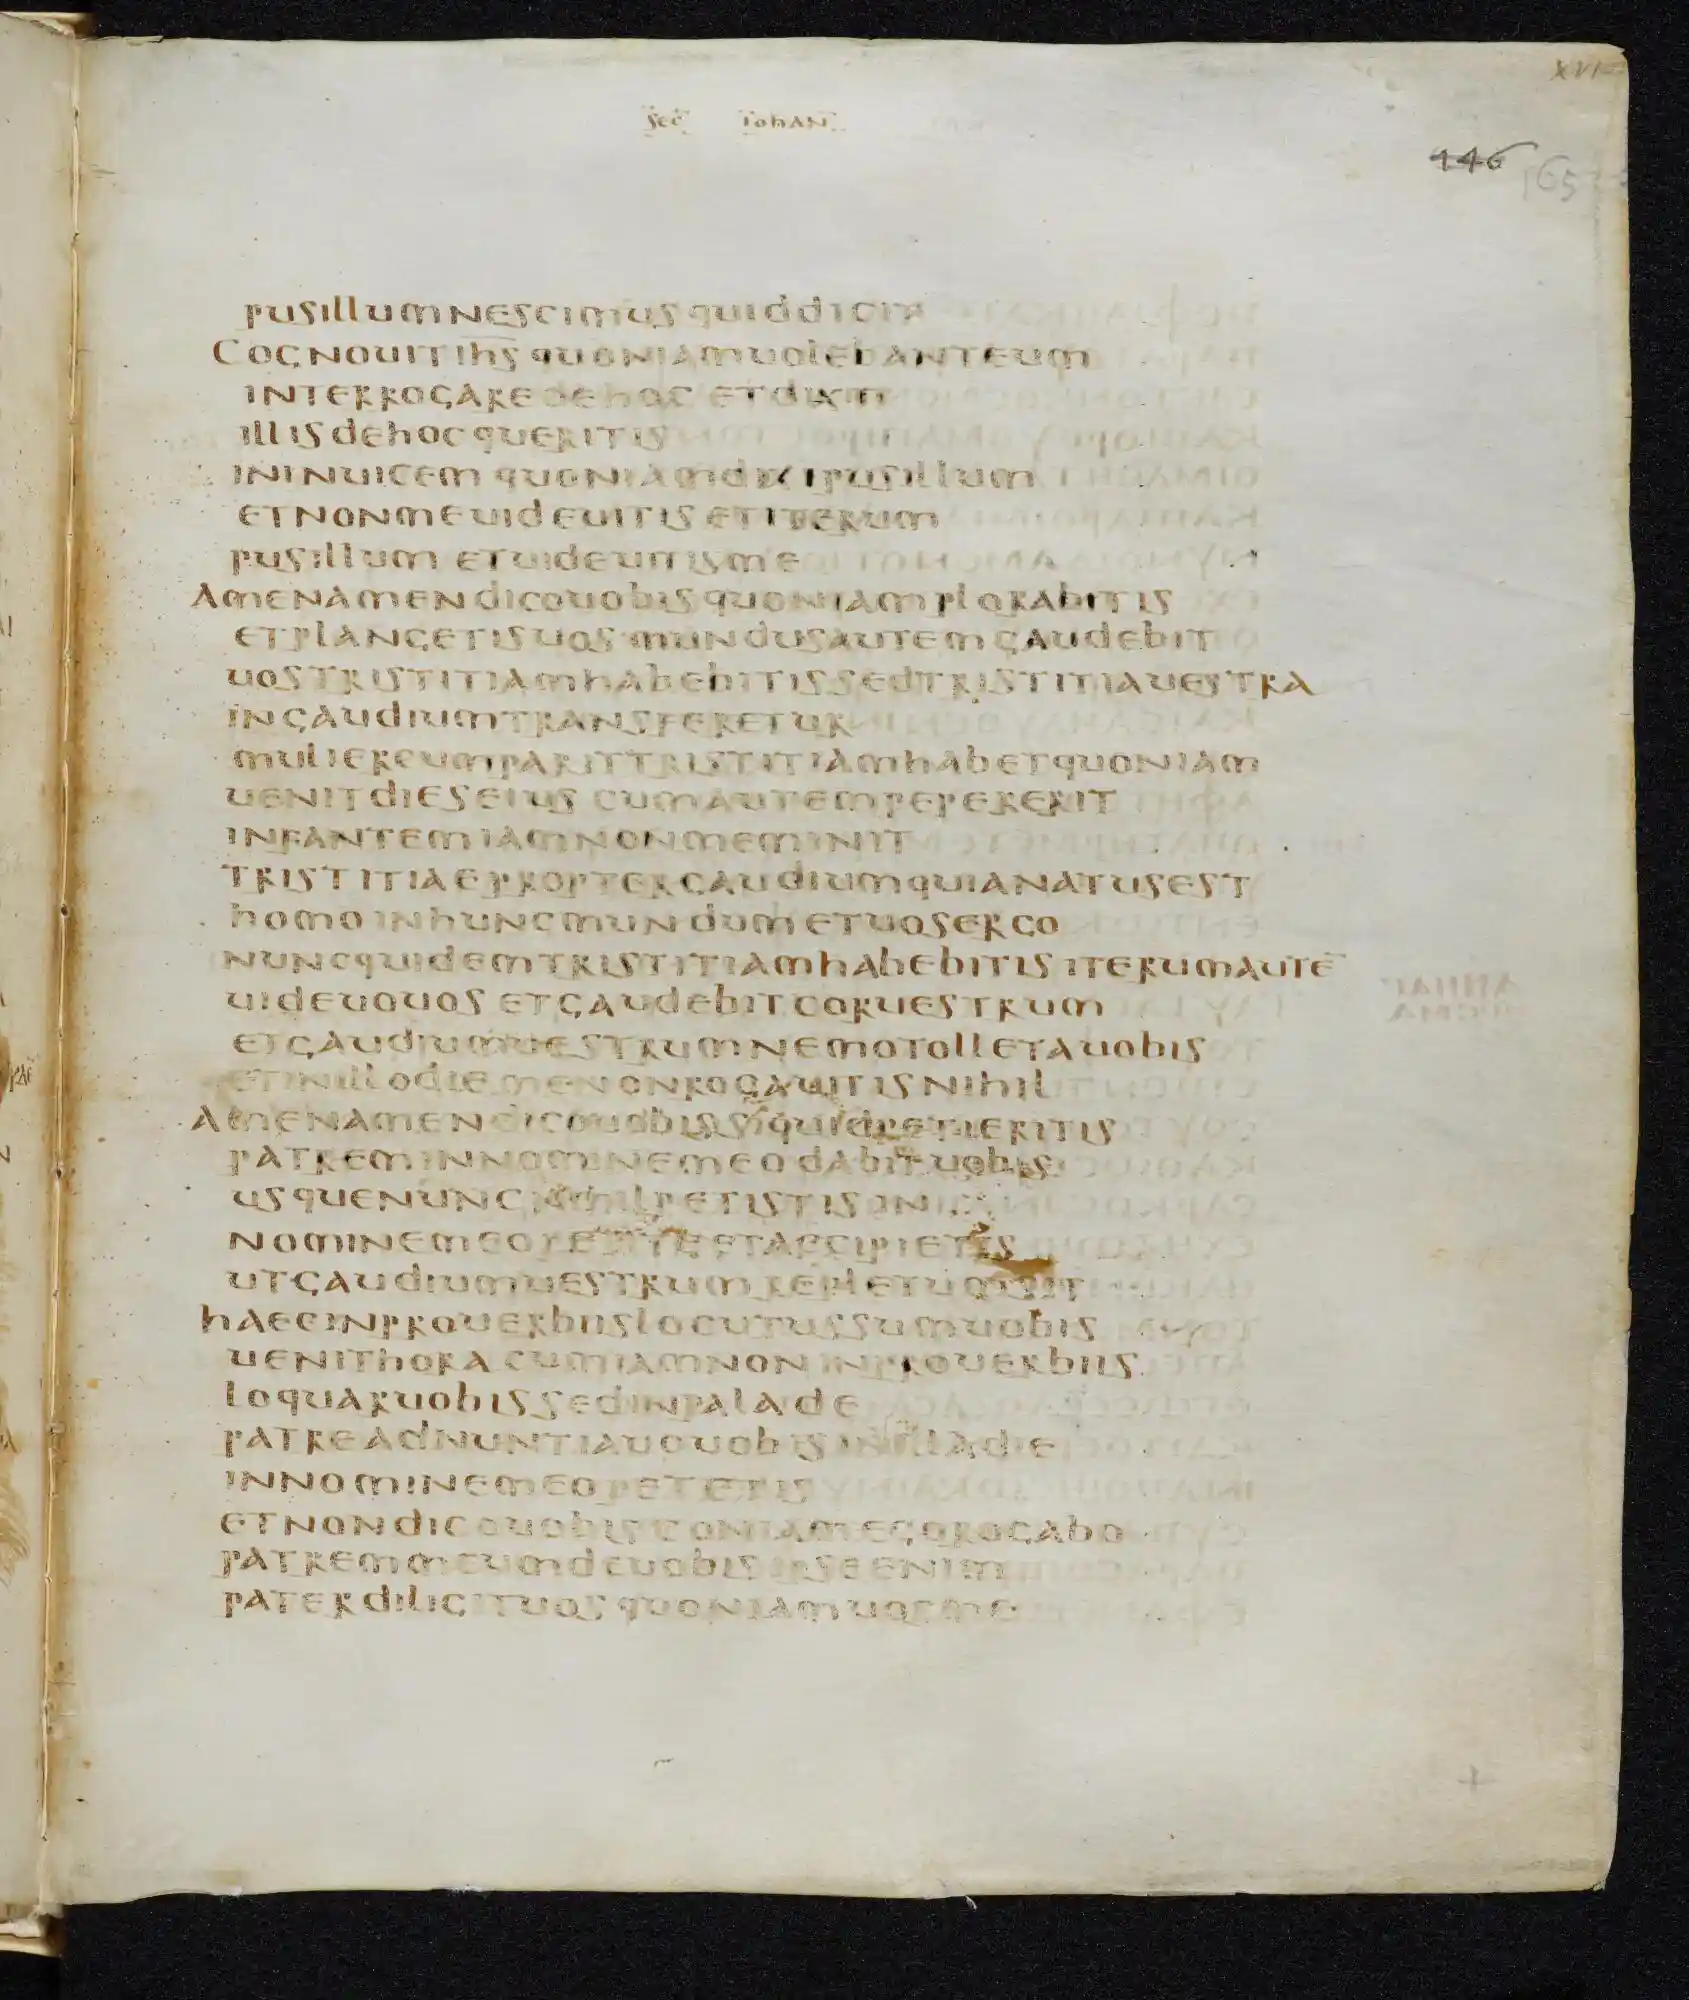 XVI
sec iohan
146 165
pusillum nescimus quid dicit
Cognouit ihs quoniam uolebant eum
interrogare de hoc et dixit
illis de hoc queritis
in inuicem quoniam dixi pusillum
et non me uideuitis et iterum
pusillum et uideuitis me
Amen amen dico uobis quoniam plorabitis
et plangetis uos mundus autem gaudebit
uos tristitiam habebitis sed tristitia uestra
in gaudium transferetur
mulier cum parit tristitiam habet quoniam
uenit dies eius cum autem pepererit
infantem iam non meminit
tristitiae propter gaudium quia natus est
homo in hunc mundum et uos ergo
nunc quidem tristitiam habebitis iterum autē
uideuo uos et gaudebit cor uestrum
et gaudium uestrum nemo tollet a uobis
et in illo die me non rogauitis nihil
Amen amen dico uobis si quid petieritis
patrem in nomine meo dabit uobis
usque nunc nihil petistis in
nomine meo petite et accipietis
ut gaudium uestrum repletum sit
haec in prouerbiis locutus sum uobis
uenit hora cum iam non in prouerbiis
loquar uobis sed in pala de
patre adnuntiauo uobis in illa die
in nomine meo petetis
et non dico uobis ego rogabo
patrem meum de uobis ipse enim
pater diligit uos quoniam uos me